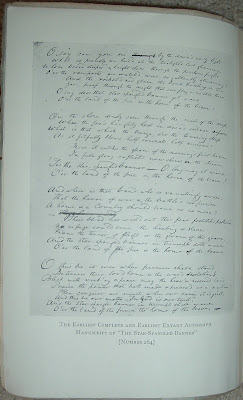 O say can you see by the dawn's early light
What so proudly we hail'd at the twilight's last gleaming
Whose bright stars through the perilous fight
O'er the ramparts we watch'd were so gallantly streaming
And the
Gave proof through the night that our flag was still there
O say does that star spangled banner yet wave
O'er the land of the free & the home of the brave
On the shore dimly seen through the mists of the deep
Where the foe's haughty host in dread silence reposes
What is that which the breeze, o'er the towering steep
As it fitfully blows, half conceals, half discloses
Now it catches the gleam of the morning's first beam
In full glory reflected now shines
'Tis the star-spangled banner O long may it wave
O'er the land of the free & the home of the brave
And where is that band who so vauntingly swore
That the havoc of war & the battle's confusion
A home & a Country
Their blood has wash'd out their foul footsteps pollution
No refuge could save the hireling & slave
From the terror of flight or the gloom of the grave
And the star-spangled banner in triumph doth wave
O'er the land of the free & the home of the brave
O thus be it ever when freemen shall stand
Between their lov'd home & the war's desolation
Blest with vict'ry & peace may the heav'n rescued land
Praise the power that hath made & preserv'd us a nation
Then conquer we must when our cause it is just
And this be our motto
And the star-spangled banner in triumph shall wave
O'er the land of the free & the home of the brave
The Earliest Complete and Earliest Extant Autograph
Manuscript of "The Star-Spangled Banner"
[Number 264]